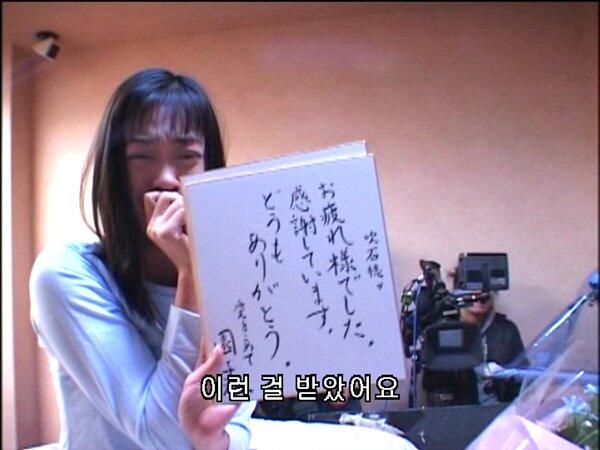 吹石
お疲れ様でした。
感謝しています。
どうも
ありがとう。
愛をこめて
園
이런 걸 받았어요